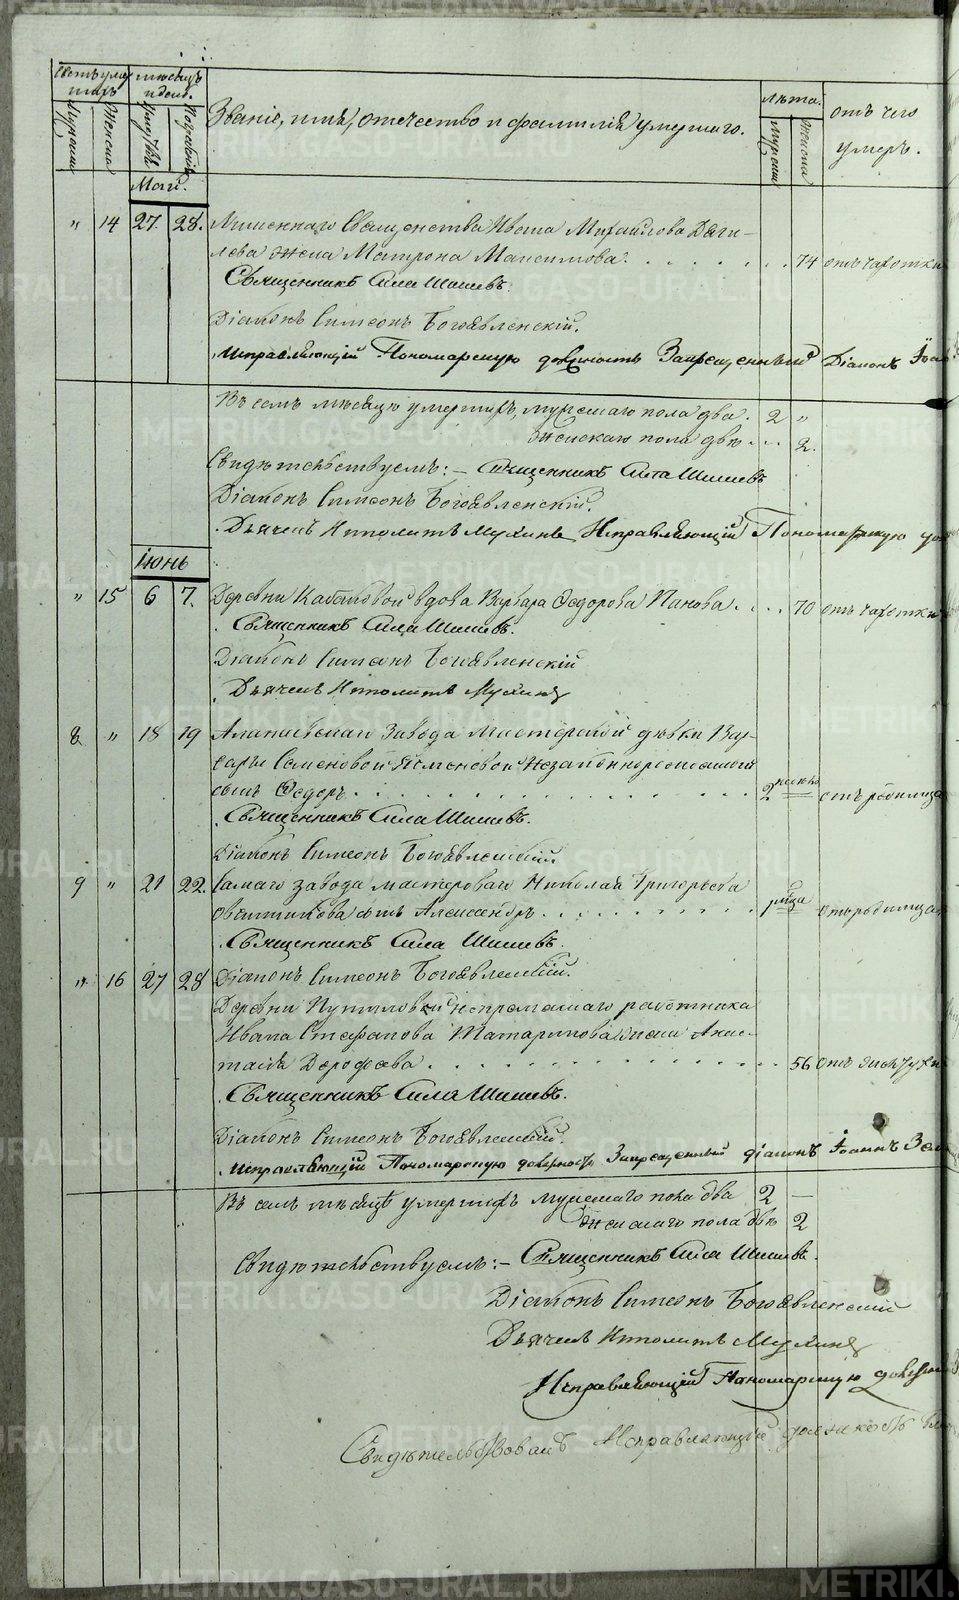 Счетъ умер
шихъ
Мужеска
Женска
мѣсяцъ
и день.
Звание, имя, отечество и фамилія умершаго.
лѣта.
Мужеска
Женска
отъ чего
умеръ.
Май.
" 14 27. 28. Лишеннаго Священства Ивана Михайлова Дяги-
лева жена Матрона Максимова. 74 отъ чахотки
Священникъ Сила Шишевъ.
Діаконъ Симеонъ Богоявленскій.
Исправляющій Пономарскую должность Запрещенный Діаконъ
Въ семъ мѣсяцѣ умершихъ, мужескаго пола два. 2 "
женскаго пола двѣ 2.
Свидѣтельствуемъ:- Священникъ Сила Шишевъ
Діаконъ Симеонъ Богоявленскій.
Дьячекъ Ипполитъ Мухинъ Исправляющій Пономарскую
Іюнь
" 15 6 7. Деревни вдова Варвара Ѳедорова Панова. 70 отъ чахотки
Священникъ Сила Шишевъ.
Діаконъ Симеонъ Богоявленскій
Дьячекъ Ипполитъ Мухинъ
8 " 18 19 Алапаевскаго Завода Мастерской дѣвки Вар-
вары Семеновой незаконнорожденный
сынъ Ѳедоръ 2 отъ родимца
Священникъ Сила Шишевъ.
Діаконъ Симеонъ Богоявленскій.
9 " 21 22. Самаго завода мастероваго Николая Григорьева
Овчинникова сынъ Александръ отъ родимца
Священникъ Сила Шишевъ.
" 16 27 28 Діаконъ Симеонъ Богоявленскій.
Деревни Путиловой непремѣннаго работника
Ивана Стефанова Татаринова жена Анас-
тасія Дорофеева 56 отъ
Священникъ Сила Шишевъ.
Діаконъ Симеонъ Богоявленскій.
Исправляющій Пономарскую должность Запрещенный діаконъ Іоаннъ
Въ семъ мѣсяцѣ умершихъ мужескаго пола два 2 —
женскаго пола двѣ 2
Свидѣтельствуемъ:- Священникъ Сила Шишевъ.
Діаконъ Симеонъ Богоявленскій
Дьячекъ Ипполитъ Мухинъ
Исправляющій Пономарскую
Свидѣтельствовалъ Исправляющій должность
METRIKI.GASO-URAL.RU